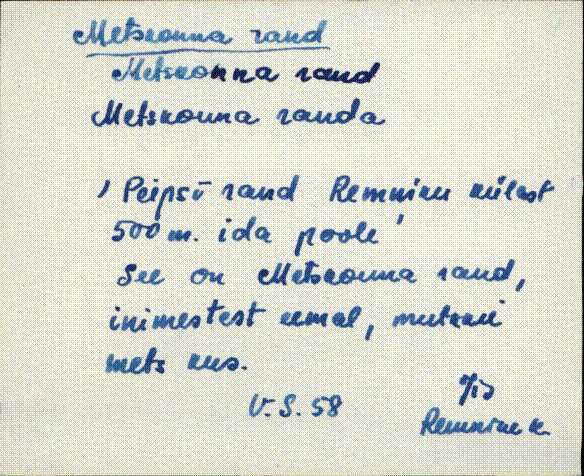 Metskonna rand
Metskonna rand
Metskonna randa
) Peipsi rand Remniku külast
500 m. ida poole
See on Metskonna rand,
inimestest eemal,
mets
V. S. 58
Jis
Remniku k.